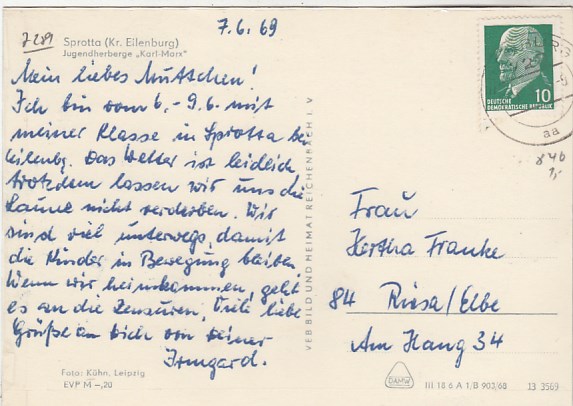 7.6.69
7289
Sprotta (Kr. Eilenburg)
Jugendherberge „Karl-Marx"
Mein liebes Muttchen!
Ich bin vom 6.-9.6. mit
meiner Klasse in Sprotta bei
Eilenbg. Das Wetter ist leidlich
trotzdem lassen wir uns die
Laune nicht verderben. Wir
sind viel unterwegs, damit
die Kinder in Bewegung bleiben
Wenn wir heimkommen, geht
es an die Zensuren. Viele liebe
Grüße an Dich von Deiner
Irmgard.
Foto: Kühn, Leipzig
EVP M –,20
VEB BILD UND HEIMAT REICHENBACH I. V
10
DEUTSCHE
DEMOKRATISCHE REPUBLIK
aa
840
1,-
Frau
Hertha Franke
84 Riesa/Elbe
Am Hang 34
DAMW
III 18 6 A 1/B 903/68
13 3569